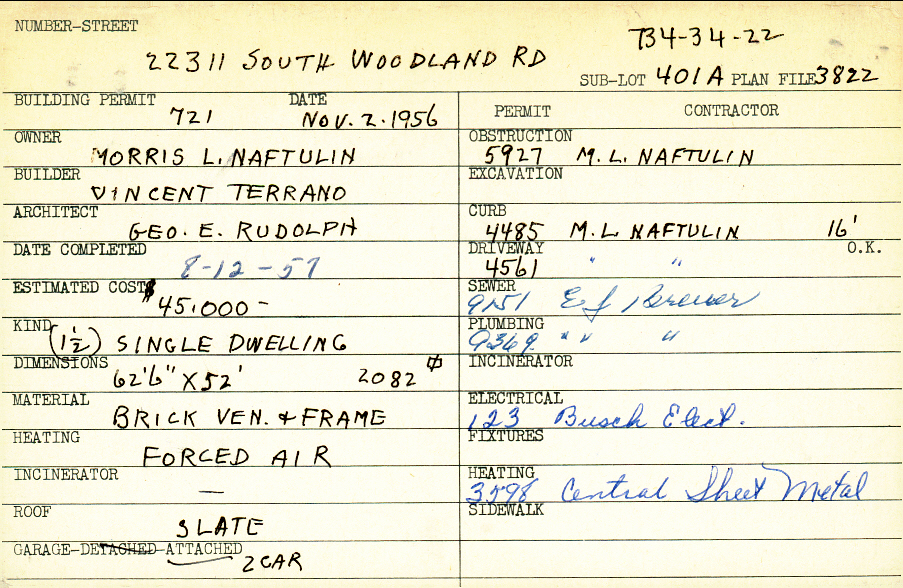 NUMBER-STREET
734-34-22
22311 SOUTH WOODLAND RD
SUB-LOT 401A PLAN FILE 3822
BUILDING PERMIT DATE
721 NOV. 2. 1956
OWNER
MORRIS L. NAFTULIN
BUILDER
VINCENT TERRANO
ARCHITECT
GEO. E. RUDOLPH
DATE COMPLETED
8-12-57
ESTIMATED COST
$45,000-
KIND
(1½) SINGLE DWELLING
DIMENSIONS
62'6" X 52' 2082
MATERIAL
BRICK VEN. & FRAME
HEATING
FORCED AIR
INCINERATOR
—
ROOF
SLATE
GARAGE-DETACHED-ATTACHED
2 CAR
PERMIT CONTRACTOR
OBSTRUCTION
5927 M. L. NAFTULIN
EXCAVATION
CURB
4485 M. L NAFTULIN 16'
DRIVEWAY O.K.
4561 " "
SEWER
9151 E J Brewer
PLUMBING
9369 " " "
INCINERATOR
ELECTRICAL
123 Busch Elect.
FIXTURES
HEATING
3598 Central Sheet Metal
SIDEWALK